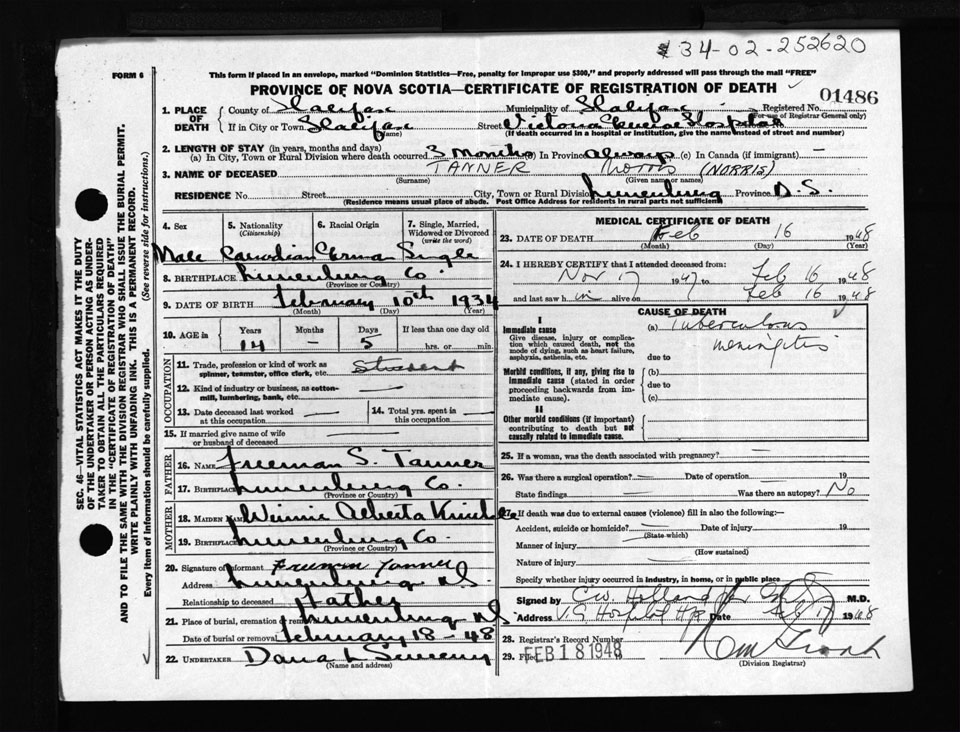 134-02-252620
FORM 6
This form if placed in an envelope, marked "Dominion Statistics—Free, penalty for improper use $300," and properly addressed will pass through the mail "FREE"
PROVINCE OF NOVA SCOTIA—CERTIFICATE OF REGISTRATION OF DEATH
01486
1. PLACE OF DEATH
County of Halifax Municipality of Halifax Registered No.
(For use of Registrar General only)
If in City or Town Halifax Street Victoria General Hospital
(Name) (If death occurred in a hospital or institution, give the name instead of street and number)
2. LENGTH OF STAY (in years, months and days)
(a) In City, Town or Rural Division where death occurred 3 Months (b) In Province always (c) In Canada (if immigrant) —
3. NAME OF DECEASED TANNER Morris (NORRIS)
(Surname) (Given name or names)
RESIDENCE No. Street City, Town or Rural Division Lunenburg Province N. S.
(Residence means usual place of abode. Post Office Address for residents in rural parts not sufficient)
4. Sex
5. Nationality (Citizenship)
6. Racial Origin
7. Single, Married, Widowed or Divorced (write the word)
Male Canadian German Single
8. BIRTHPLACE Lunenburg Co.
(Province or Country)
9. DATE OF BIRTH February 10th 1934
(Month) (Day) (Year)
10. AGE in Years Months Days If less than one day old
14 — 5 hrs. or min.
OCCUPATION
11. Trade, profession or kind of work as spinner, teamster, office clerk, etc. Student
12. Kind of industry or business, as cotton-mill, lumbering, bank, etc. —
13. Date deceased last worked at this occupation —
14. Total yrs. spent in this occupation —
15. If married give name of wife or husband of deceased —
FATHER
16. NAME Freeman S. Tanner
17. BIRTHPLACE Lunenburg Co.
(Province or Country)
MOTHER
18. MAIDEN NAME Winnie Alberta
19. BIRTHPLACE Lunenburg Co.
(Province or Country)
20. Signature of informant Freeman Tanner
Address Lunenburg N.S.
Relationship to deceased Father
21. Place of burial, cremation or removal Lunenburg N.S.
Date of burial or removal February 18 - 48
22. UNDERTAKER Dana L Sweeny
(Name and address)
MEDICAL CERTIFICATE OF DEATH
23. DATE OF DEATH Feb 16 1948
(Month) (Day) (Year)
24. I HEREBY CERTIFY that I attended deceased from:
Nov 17 1947 to Feb 16 1948
and last saw him alive on Feb 16 1948
CAUSE OF DEATH
I
Immediate cause
Give disease, injury or complication which caused death, not the mode of dying, such as heart failure, asphyxia, asthenia, etc.
(a) Tuberculous
meningitis
due to
Morbid conditions, if any, giving rise to immediate cause (stated in order proceeding backwards from immediate cause).
(b)
due to
(c)
II
Other morbid conditions (if important) contributing to death but not causally related to immediate cause.
25. If a woman, was the death associated with pregnancy? —
26. Was there a surgical operation? — Date of operation — 19
State findings Was there an autopsy? No
27. If death was due to external causes (violence) fill in also the following:—
Accident, suicide or homicide? Date of injury 19
(State which)
Manner of injury
(How sustained)
Nature of injury
Specify whether injury occurred in industry, in home, or in public place
Signed by C.W. Holland M.D.
Address V.G. Hospital Hfx Date Feb 17 1948
28. Registrar's Record Number
29. Filed FEB 18 1948
(Division Registrar)
SEC. 46—VITAL STATISTICS ACT MAKES IT THE DUTY
OF THE UNDERTAKER OR PERSON ACTING AS UNDER-
TAKER TO OBTAIN ALL THE PARTICULARS REQUIRED
IN THE "CERTIFICATE OF REGISTRATION OF DEATH"
AND TO FILE THE SAME WITH THE DIVISION REGISTRAR WHO SHALL ISSUE THE BURIAL PERMIT.
WRITE PLAINLY WITH UNFADING INK. THIS IS A PERMANENT RECORD.
Every item of information should be carefully supplied. (See reverse side for instructions.)